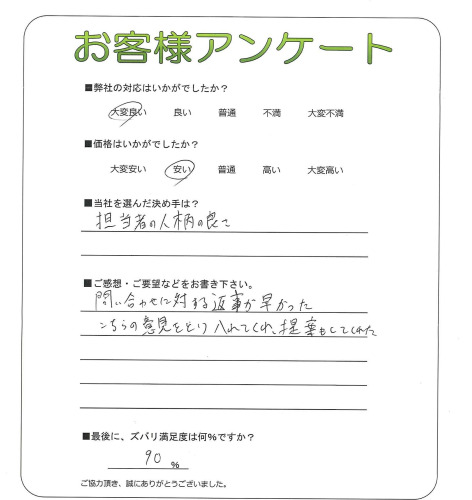 お客様アンケート
■弊社の対応はいかがでしたか？
大変良い 良い 普通 不満 大変不満
■価格はいかがでしたか？
大変安い 安い 普通 高い 大変高い
■当社を選んだ決め手は？
担当者の人柄の良さ
■ご感想・ご要望などをお書き下さい。
問い合わせに対する返事が早かった
こちらの意見をとり入れてくれ、提案もしてくれた
■最後に、ズバリ満足度は何%ですか？
90 %
ご協力頂き、誠にありがとうございました。